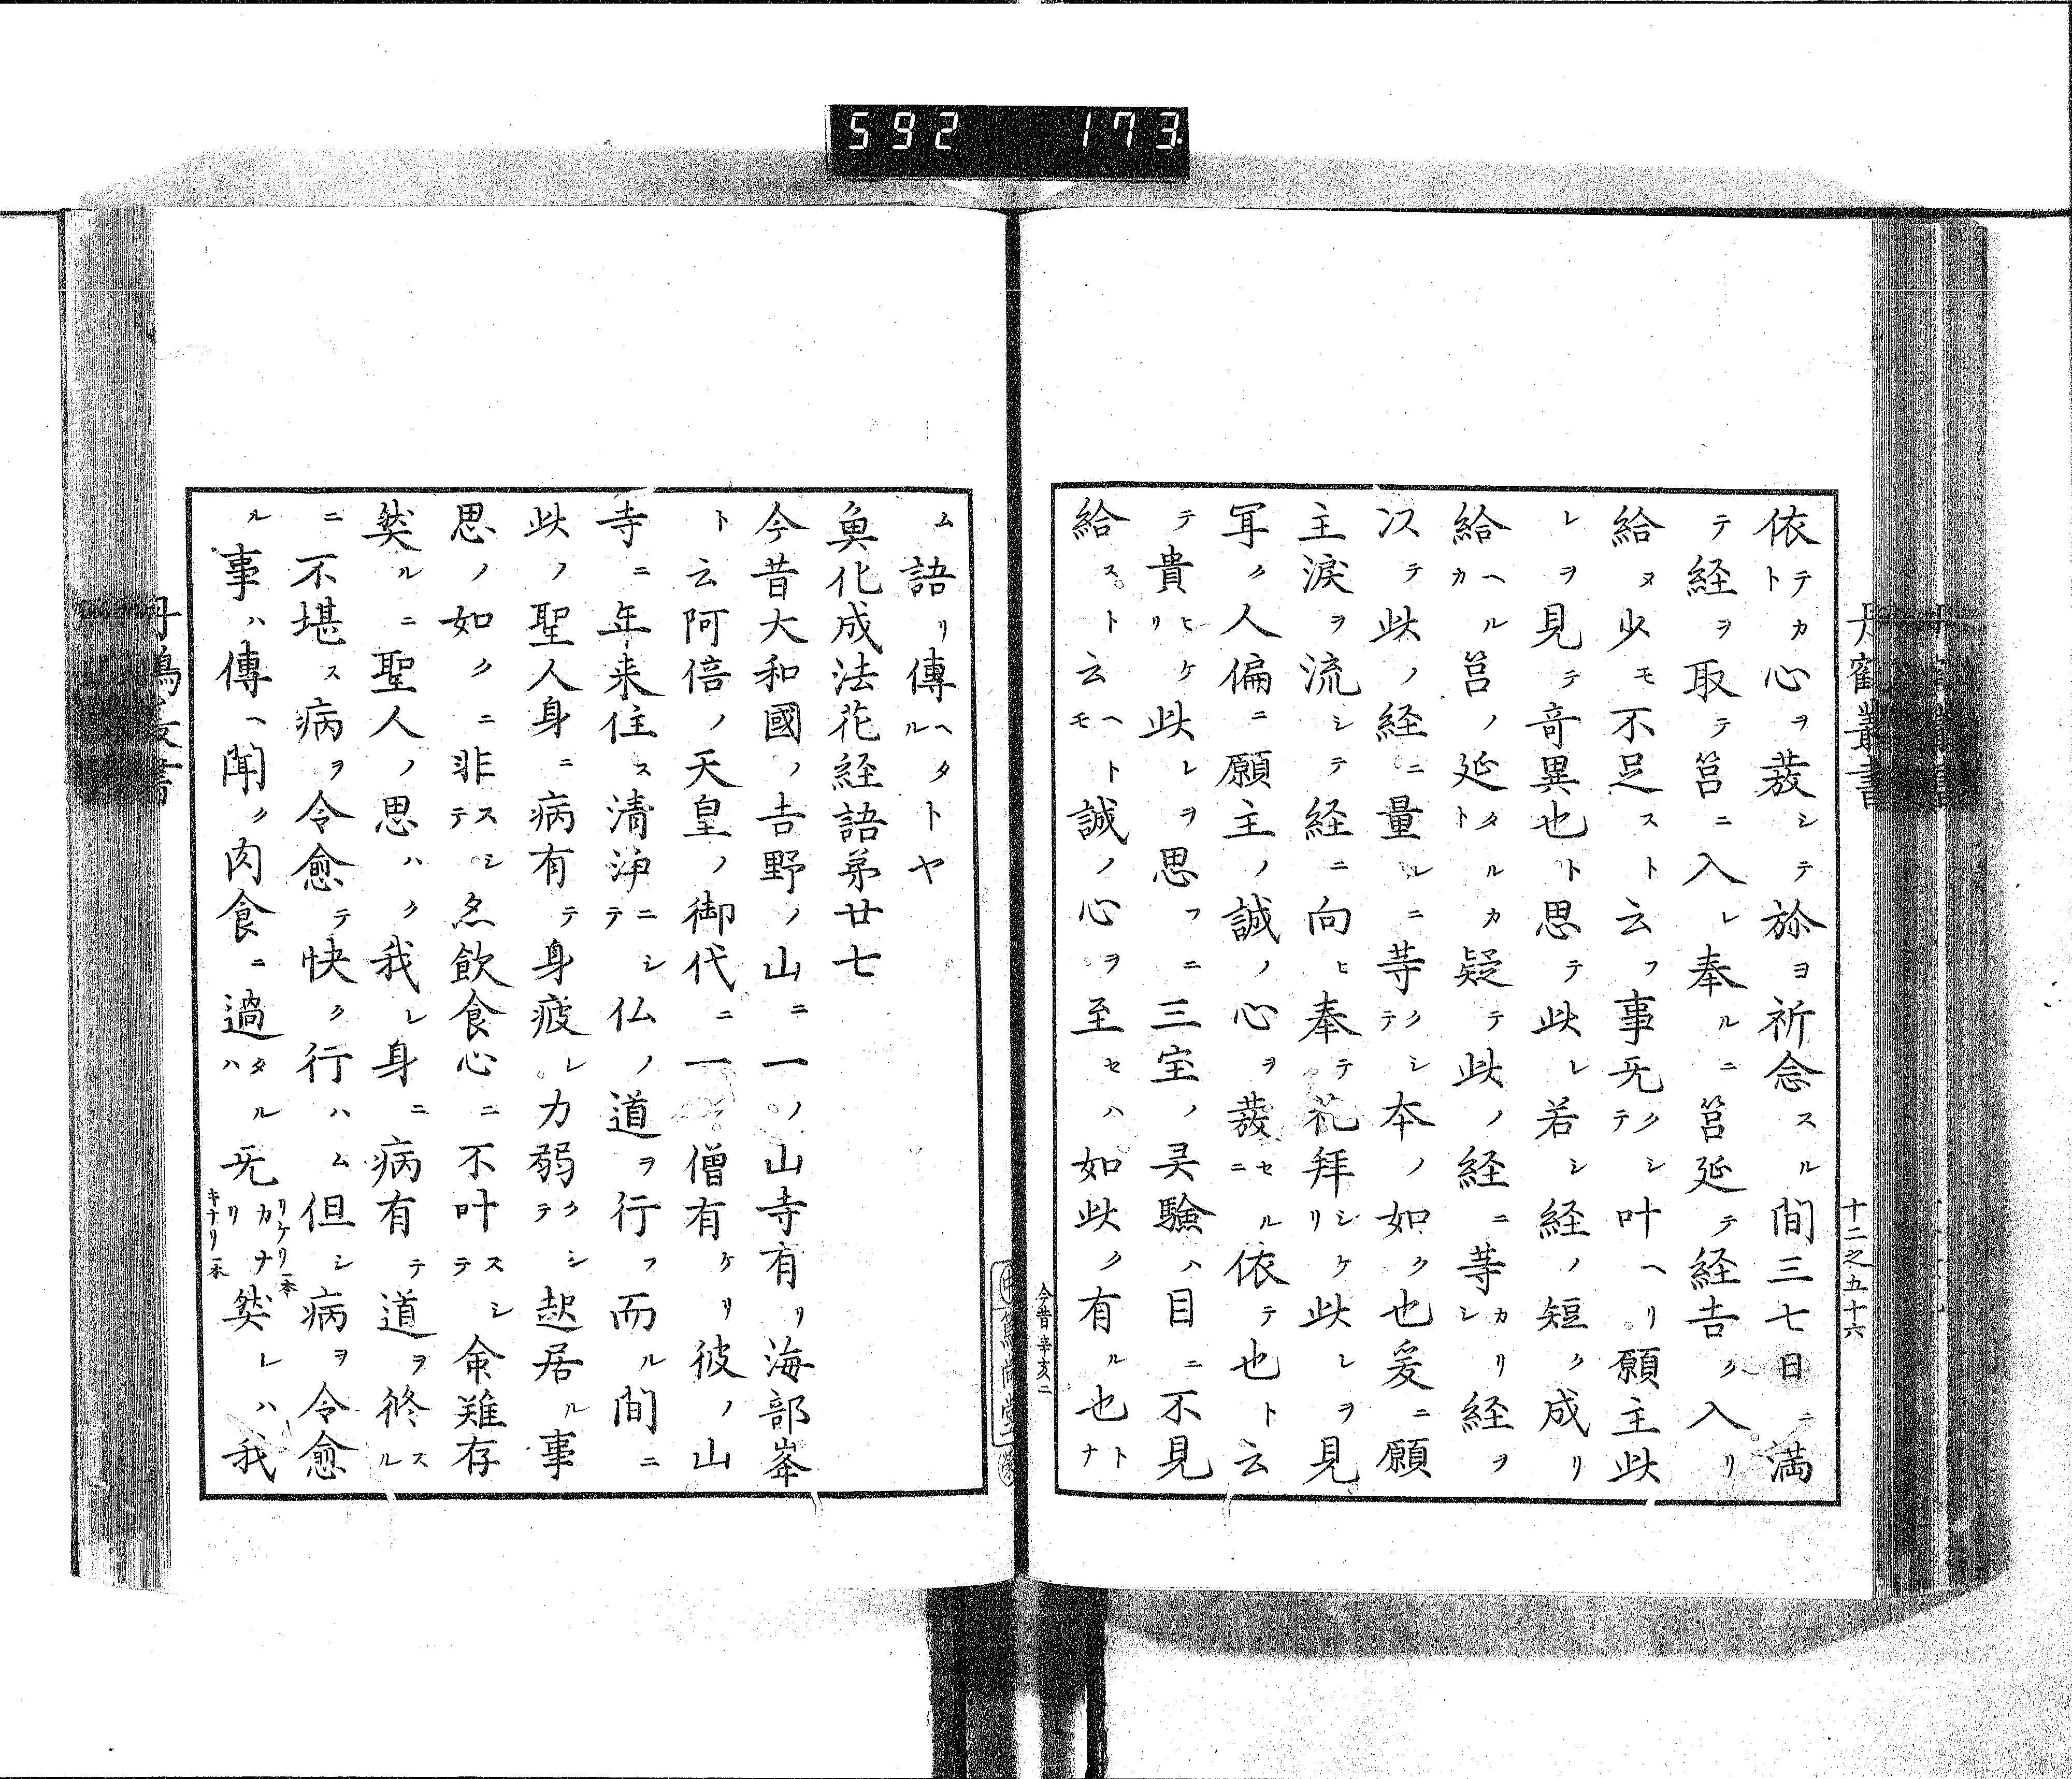 592 173
丹鶴叢書
十二之五十六
依テカト心ヲ發シテ旀ヨ祈念スル間三七日ニ満
テ経ヲ取テ筥ニ入レ奉ルニ筥延テ経吉ク入リ
給ヌ少モ不足スト云フ事旡クシテ叶ヘリ願主此
レヲ見テ奇異也ト思テ此レ若シ経ノ短ク成リ
給ヘルカ筥ノ延タルカト疑テ此ノ経ニ等カリシ経ヲ
以テ此ノ経ニ量レニ等クシテ本ノ如ク也爰ニ願
主涙ヲ流シテ経ニ向ヒ奉テ礼拜シケリ此レヲ見
耳ク人偏ニ願主ノ誠ノ心ヲ發セルニ依テ也ト云
テ貴ヒケリ此レヲ思フニ三宝ノ灵驗ハ目ニ不見
給スト云ヘトモ誠ノ心ヲ至セハ如此ク有ル也トナ
今昔 辛亥二
ム語リ傳ヘタルトヤ
魚化成法花経語第廿七
今昔大和國ノ吉野ノ山ニ一ノ山寺有リ海部峯
ト云阿倍ノ天皇ノ御代ニ一ノ僧有ケリ彼ノ山
寺ニ年来住ス清浄ニシテ仏ノ道ヲ行フ而ル間ニ
此ノ聖人身ニ病有テ身疲レ力弱クシテ起居ル事
思ノ如クニ非スシテ亦飲食心ニ不叶スシテ命難存
然ルニ聖人ノ思ハク我レ身ニ病有テ道ヲ修スル
ニ不堪ス病ヲ令愈テ快ク行ハム但シ病ヲ令愈
ル事ハ傳ヘ聞ク肉食ニ過タルハ旡カナリ然レハ我
リケリ一本
キナリ一本